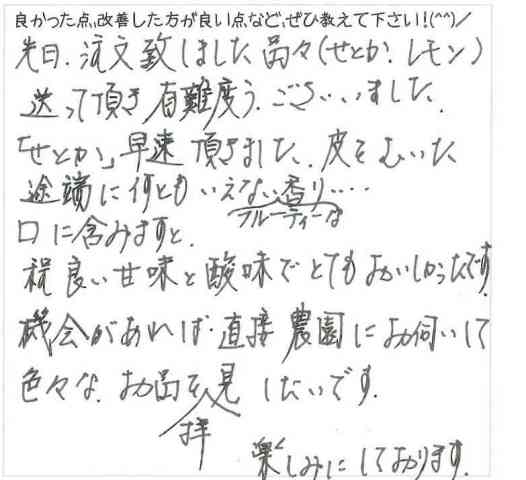 良かった点、改善した方が良い点など、ぜひ教えて下さい！(^^)／
先日、注文致しました品々(せとか、レモン)
送って頂き有難度うございました、
「せとか」早速頂きました、皮をむいた
途端に何ともいえない香り……
フルーティーな
口に含みますと、
程良い甘味と酸味でとてもおいしかったです
機会があれば、直接農園にお伺いして
色々な、お品を見したいです。
拝
楽しみにしております。